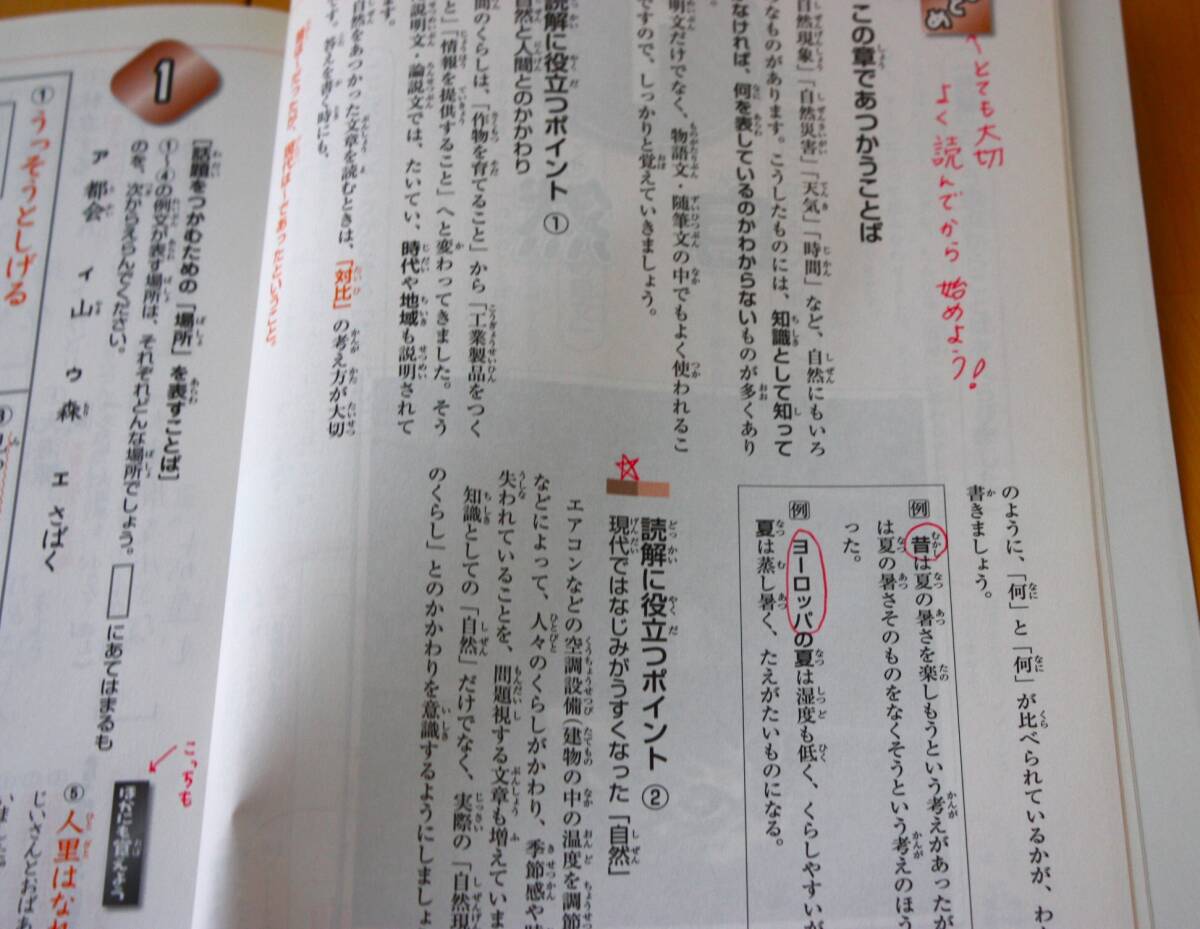 とても大切
よく読んでから始めよう!
この章であつかうことば
自然現象」「自然災害」「天気」「時間」など、自然にもいろ
なものがあります。こうしたものには、知識として知って
なければ、何を表しているのかわからないものが多くあり
明文だけでなく、物語文・随筆文の中でもよく使われるこ
ですので、しっかりと覚えていきましょう。
読解に役立つポイント ①
自然と人間とのかかわり
間のくらしは、「作物を育てること」から「工業製品をつく
と」「情報を提供すること」へと変わってきました。そう
説明文・論説文では、たいてい、時代や地域も説明されて
ます。
自然をあつかった文章を読むときは、「対比」の考え方が大切
です。答えを書く時にも、
のように、「何」と「何」が比べられているかが、わ
書きましょう。
例 昔は夏の暑さを楽しもうという考えがあったが
は夏の暑さそのものをなくそうという考えのほう
った。
例 ヨーロッパの夏は湿度も低く、くらしやすいが
夏は蒸し暑く、たえがたいものになる。
読解に役立つポイント ②
現代ではなじみがうすくなった「自然」
エアコンなどの空調設備(建物の中の温度を調節
などによって、人々のくらしがかわり、季節感や
失われていることを、問題視する文章も増えていま
知識としての「自然」だけでなく、実際の「自然現
のくらし」とのかかわりを意識するようにしましょ
1
【話題をつかむための「場所」を表すことば】
①~④の例文が表す場所は、それぞれどんな場所でしょう。□にあてはまるも
のを、次からえらんでください。
ア 都会 イ 山 ウ 森 エ さばく
① うっそうとしげる
こっちも
ほかにも覚えよう
⑤ 人里はなれ
じいさんとおばあ